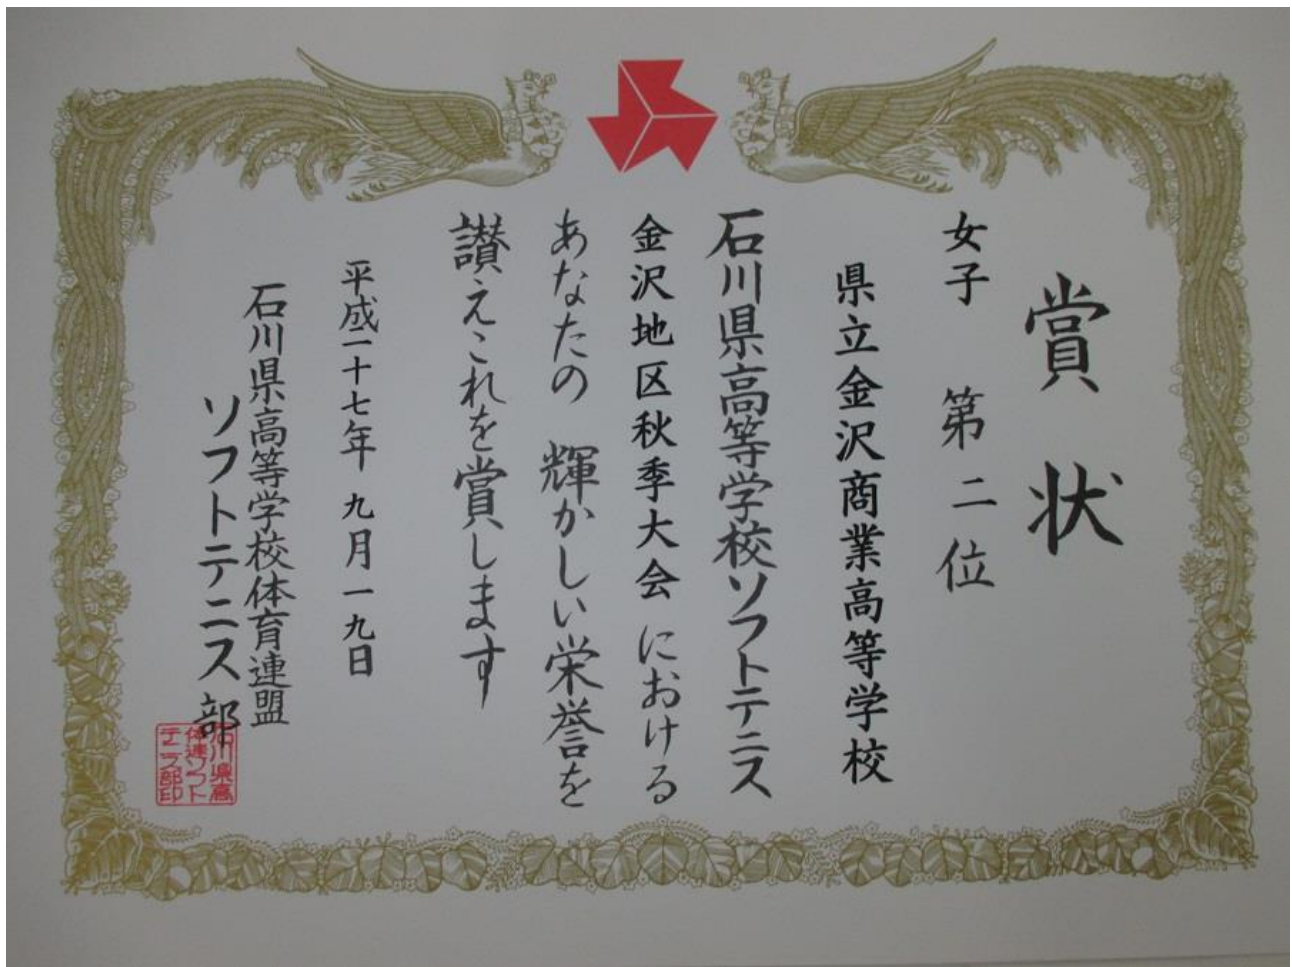 賞状
女子 第二位
県立金沢商業高等学校
石川県高等学校ソフトテニス
金沢地区秋季大会における
あなたの 輝かしい栄誉を
讃えこれを賞します
平成一十七年 九月一九日
石川県高等学校体育連盟
ソフトテニス部
石川県高
体連ソフト
テニス部印